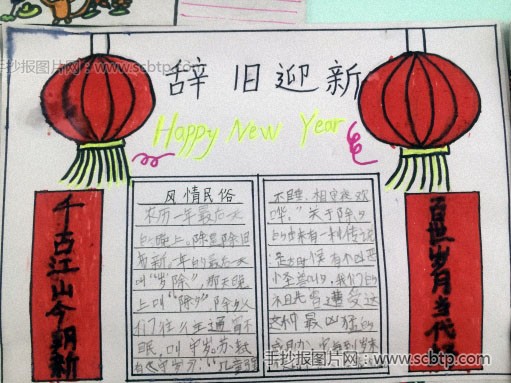 手抄报图片网：www.scbtp.com
辞旧迎新
Happy New Year
千古江山今朝新
风情民俗
农历一年最后一天
的晚上。除是除旧
布新。一年的最后一天
叫“岁除”，那天晚
上叫“除夕”除夕人
们往往通宵不
眠，叫守岁。苏轼
儿童强
不睡，相守夜欢
哗。”关于除夕
的由来有一种传说
是古时候有个凶恶
怪兽叫夕，我们的
祖先曾遭受
这种最凶猛的
百世岁月当代
手抄报图片网：www.scbtp.com